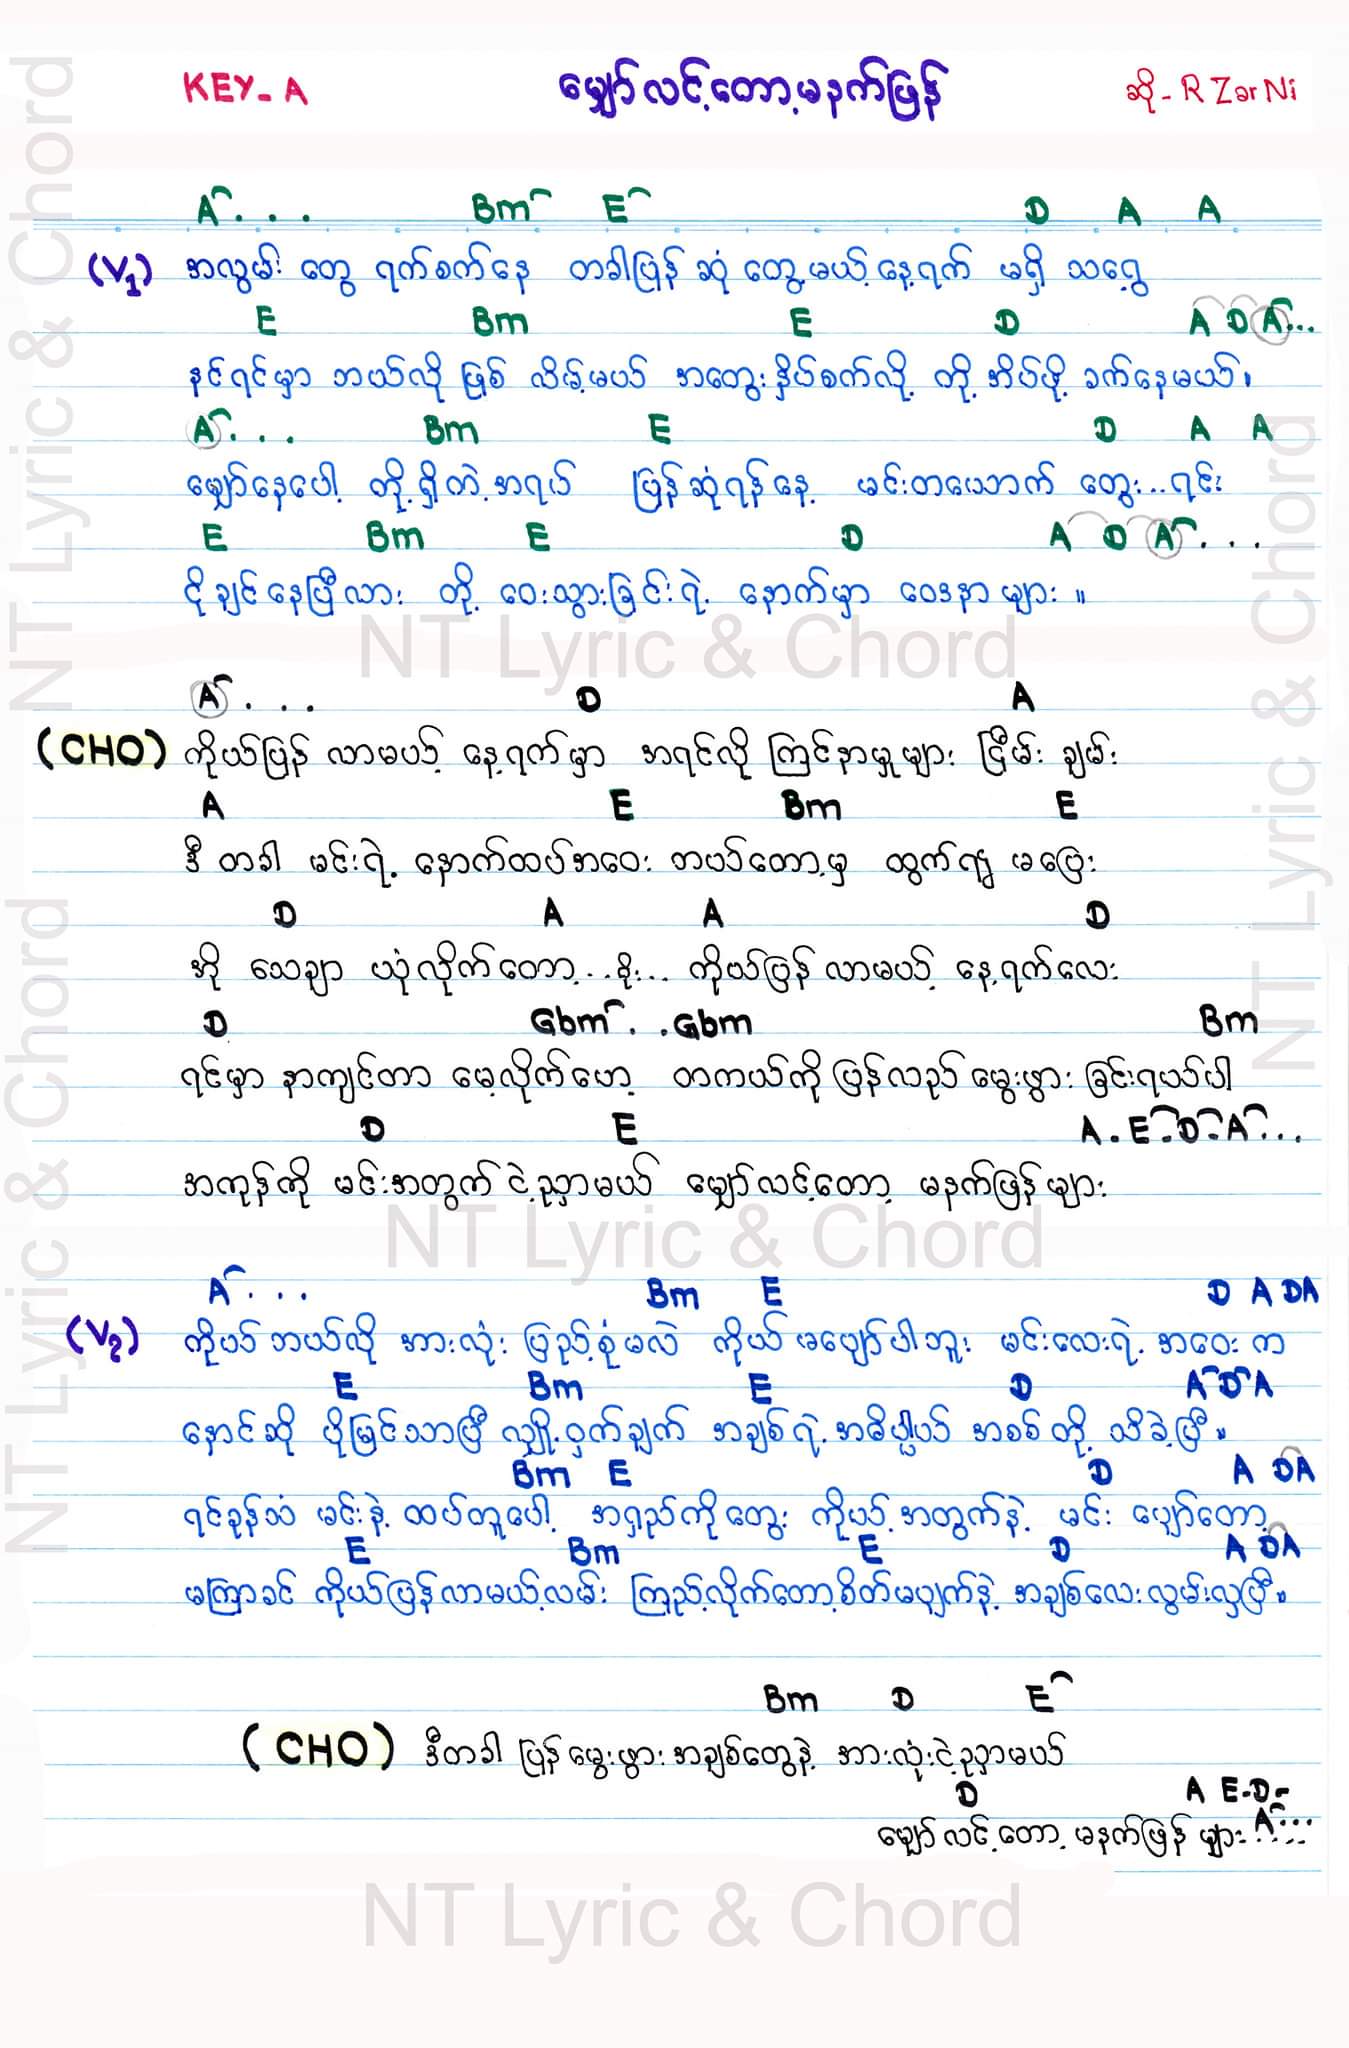 KEY-A မျှော်လင့်တော့မနက်ဖြန် ဆို-R Zar Ni
A . . . Bm E D A A
(V1) အလွမ်း တွေ ရက်စက်နေ တခါပြန် ဆုံ တွေ့မယ့်နေ့ရက် မရှိ သရွေ့
E Bm E D A D A...
နင်ရင်မှာ ဘယ်လို ဖြစ် လိမ့်မယ် အတွေးနှိပ်စက်လို့ တို့အိပ်ဖို့ ခက်နေမယ်။
A . . . Bm E D A A
မျှော်နေပေါ့ တို့ရှိတဲ့အရပ် ပြန်ဆုံရန်နေ့ မင်းတယောက် တွေး...ရင်း
E Bm E D A D A . . .
ငိုချင်နေပြီလား တို့ ဝေးသွားခြင်းရဲ့ နောက်မှာ ဝေဒနာများ ။
NT Lyric & Chord
A . . . D A
(CHO) ကိုယ်ပြန် လာမယ့် နေ့ရက်မှာ အရင်လို ကြင်နာမှုများ ငြိမ်း ချမ်း
A E Bm E
ဒီ တခါ မင်းရဲ့ နောက်ထပ်အဝေး ဘယ်တော့မှ ထွက်လျှ မပြေး
D A A D
အို သေချာ ယုံလိုက်တော့...ခိုး... ကိုယ်ပြန် လာမယ့် နေ့ရက်လေး
D Gbm . . Gbm Bm
ရင်မှာ နာကျင်တာ မေ့လိုက်ဟေ့ တကယ်ကို ပြန်လည် မွေးဖွား ခြင်းရယ်ပါ
D E A . E-D-A . . .
အကုန်ကို မင်းအတွက် ငဲ့ညှာမယ် မျှော်လင့်တော့ မနက်ဖြန်များ
NT Lyric & Chord
A . . . Bm E D A DA
(V2) ကိုယ် ဘယ်လို အားလုံး ပြည့်စုံမလဲ ကိုယ် မပျော်ပါဘူး မင်းလေးရဲ့ အဝေး က
E Bm E D A D A
နောင်ဆို ပိုမြင်သာပြီ လျှို့ဝှက်ချက် အချစ်ရဲ့အဓိပ္ပါယ် အစစ်တို့ သိခဲ့ပြီ။
Bm E D A DA
ရင်ခုန်သံ မင်းနဲ့ ထပ်တူပေါ့ အရှည်ကိုတွေး ကိုယ့်အတွက်နဲ့ မင်း ပျော်တော့
E Bm E D A DA
မကြာခင် ကိုယ်ပြန်လာမယ့်လမ်း ကြည့်လိုက်တော့စိတ်မပျက်နဲ့ အချစ်လေးလွမ်းလှပြီ။
Bm D E
(CHO) ဒီတခါ ပြန်မွေးဖွားအချစ်တွေနဲ့ အားလုံးငဲ့ညှာမယ်
D A E-D-
မျှော်လင့်တော့ မနက်ဖြန် များ A......
NT Lyric & Chord
NT Lyric & Chord
NT Lyric & Chord
NT Lyric & Chord